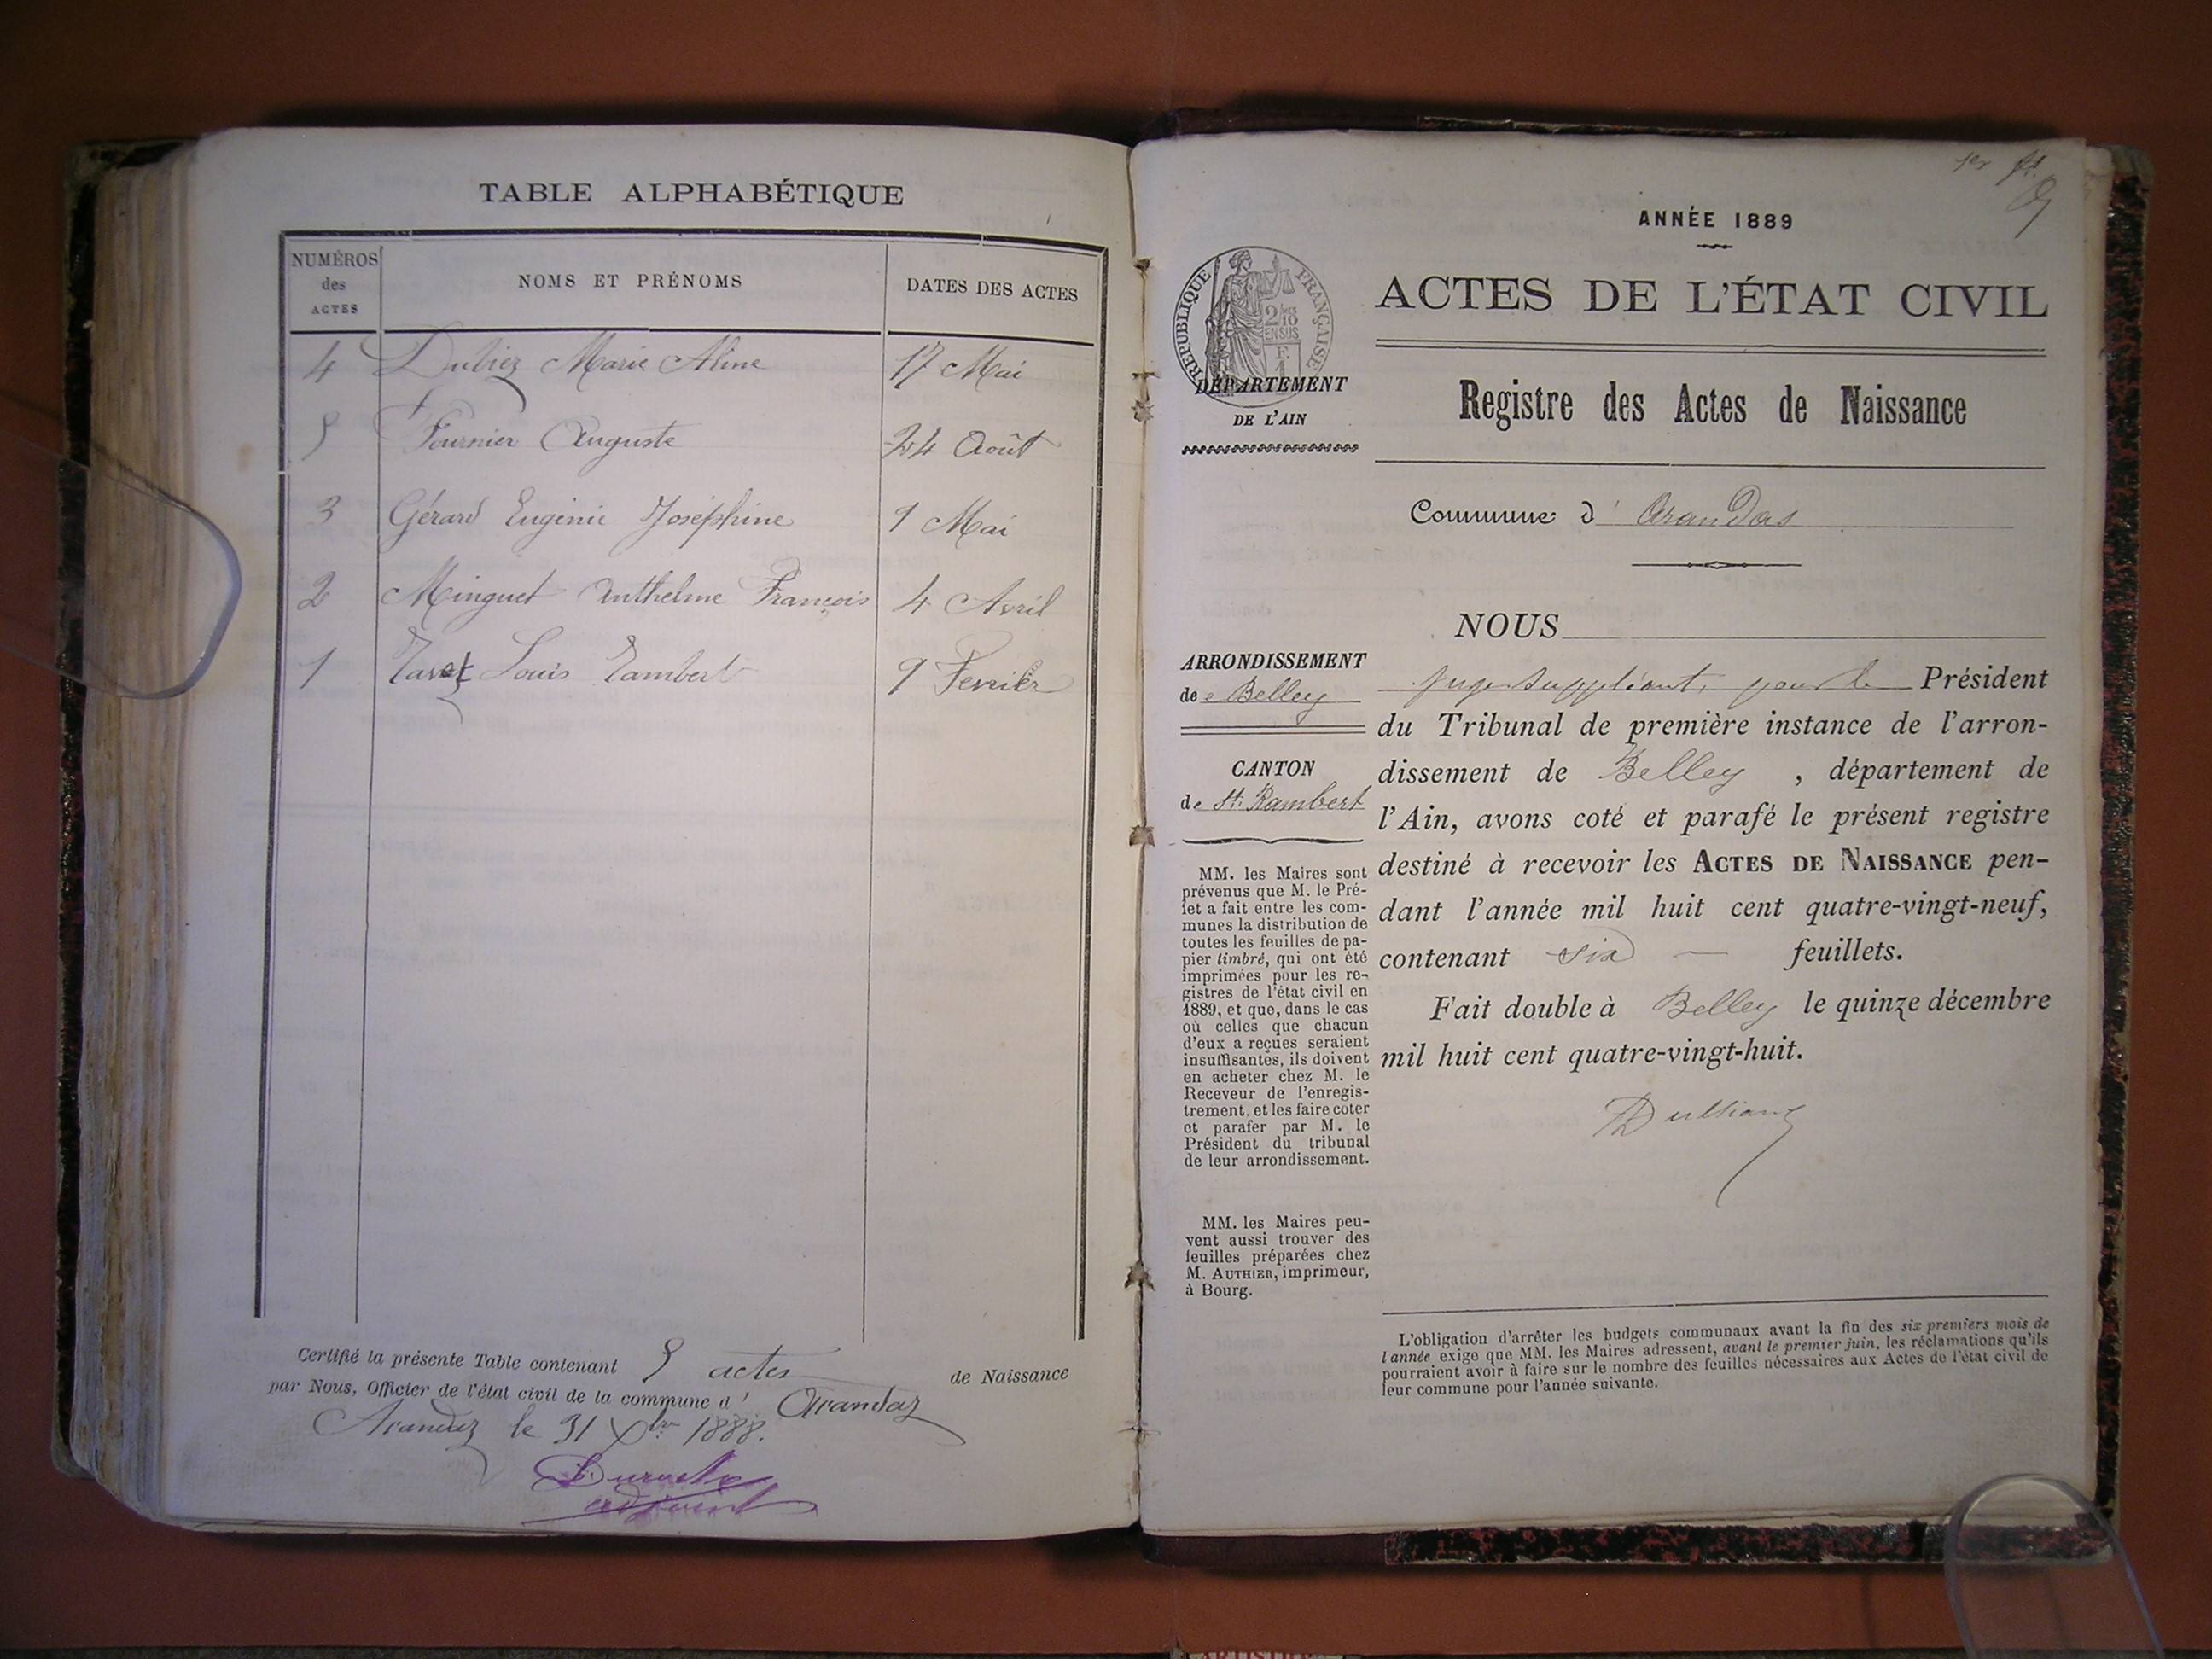 TABLE ALPHABÉTIQUE
NUMÉROS des ACTES
NOMS ET PRÉNOMS
DATES DES ACTES
4 Dubiez Marie Aline 17 Mai
5 Fournier Auguste 24 Août
3 Gérard Eugénie Joséphine 9 Mai
2 Minguet Anthelme François 4 Avril
1 Louis Rambert 9 Fevrier
Certifié la présente Table contenant 5 actes de Naissance
par Nous, Officier de l'état civil de la commune d' Arandaz
Arandaz le 31 Xbre 1888.
adjoint
1er
ANNÉE 1889
RÉPUBLIQUE FRANÇAISE
2/10
EN SUS
ACTES DE L'ÉTAT CIVIL
DÉPARTEMENT
DE L'AIN
Registre des Actes de Naissance
Commune d' Arandas
NOUS
ARRONDISSEMENT
de Belley
CANTON
de St. Rambert
MM. les Maires sont
prévenus que M. le Pré-
fet a fait entre les com-
munes la distribution de
toutes les feuilles de pa-
pier timbré, qui ont été
imprimées pour les re-
gistres de l'état civil en
1889, et que, dans le cas
où celles que chacun
d'eux a reçues seraient
insuffisantes, ils doivent
en acheter chez M. le
Receveur de l'enregis-
trement, et les faire coter
et parafer par M. le
Président du tribunal
de leur arrondissement.
MM. les Maires peu-
vent aussi trouver des
feuilles préparées chez
M. AUTHIER, imprimeur,
à Bourg.
Juge Suppléant, pour le Président
du Tribunal de première instance de l'arron-
dissement de Belley , département de
l'Ain, avons coté et parafé le présent registre
destiné à recevoir les ACTES DE NAISSANCE pen-
dant l'année mil huit cent quatre-vingt-neuf,
contenant six — feuillets.
Fait double à Belley le quinze décembre
mil huit cent quatre-vingt-huit.
L'obligation d'arrêter les budgets communaux avant la fin des six premiers mois de
l'année exige que MM. les Maires adressent, avant le premier juin, les réclamations qu'ils
pourraient avoir à faire sur le nombre des feuilles nécessaires aux Actes de l'état civil de
leur commune pour l'année suivante.